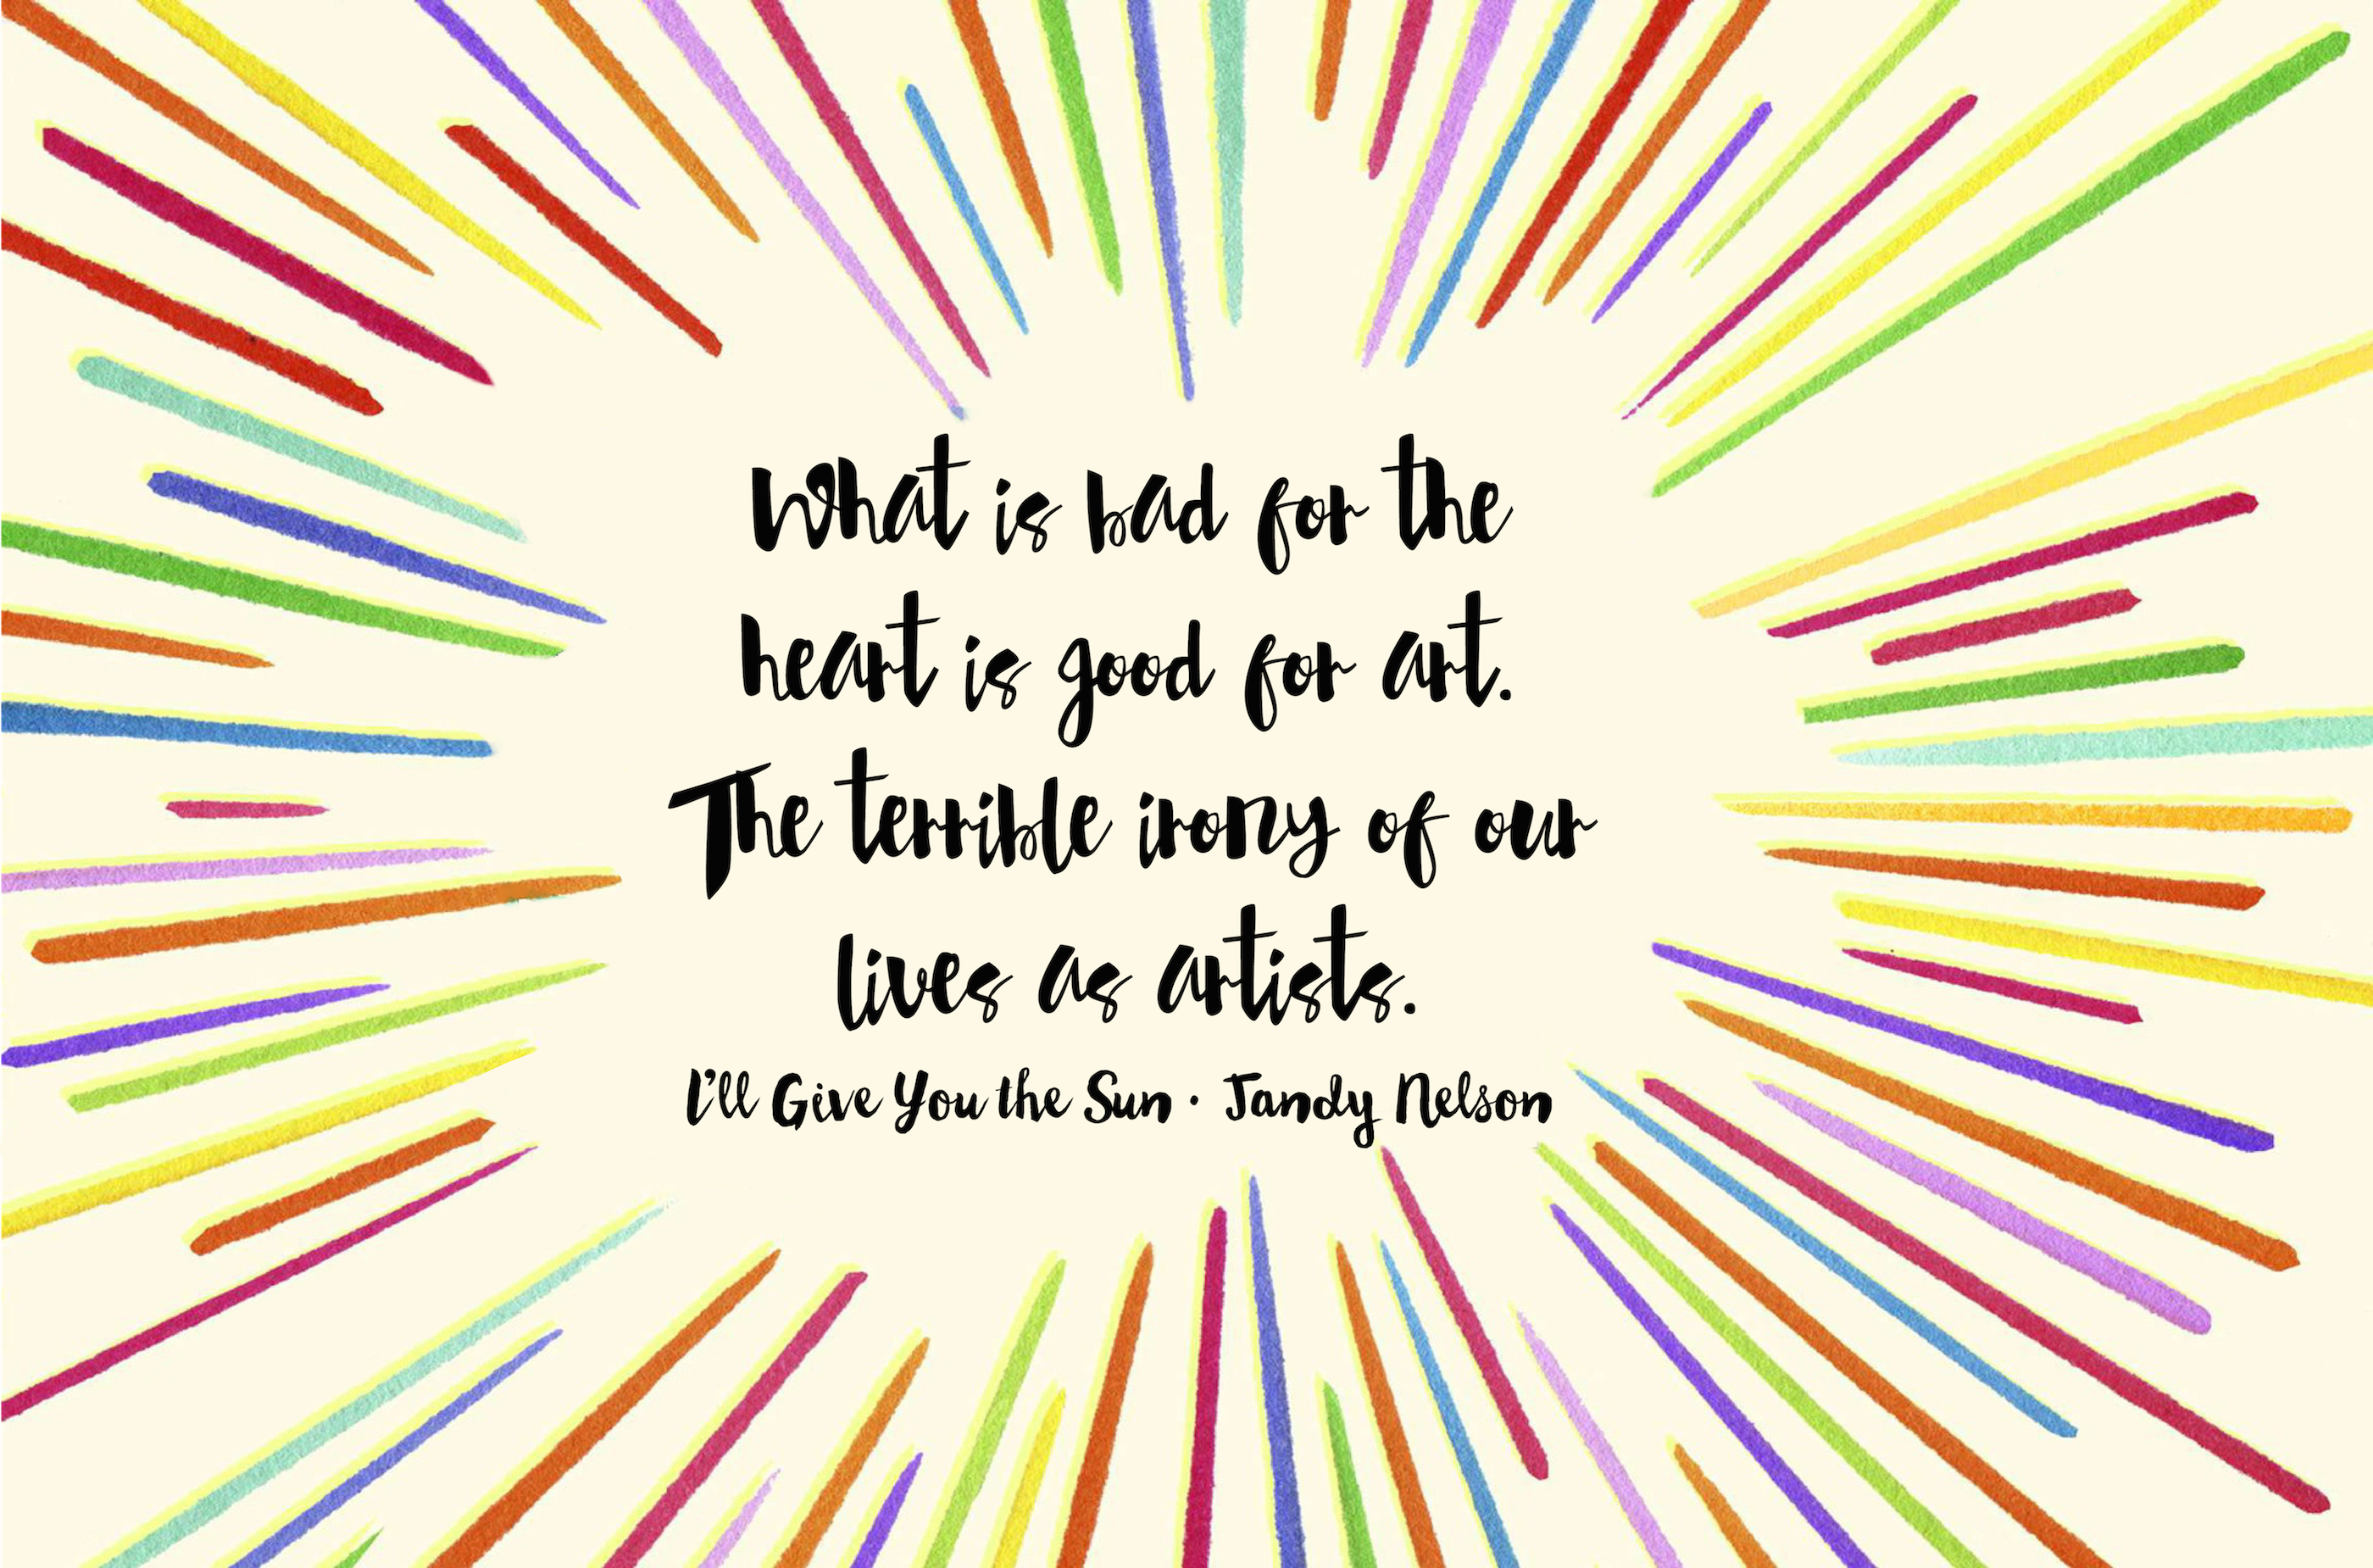 What is bad for the
heart is good for art.
The terrible irony of our
lives as artists.
I'll Give You the Sun · Jandy Nelson